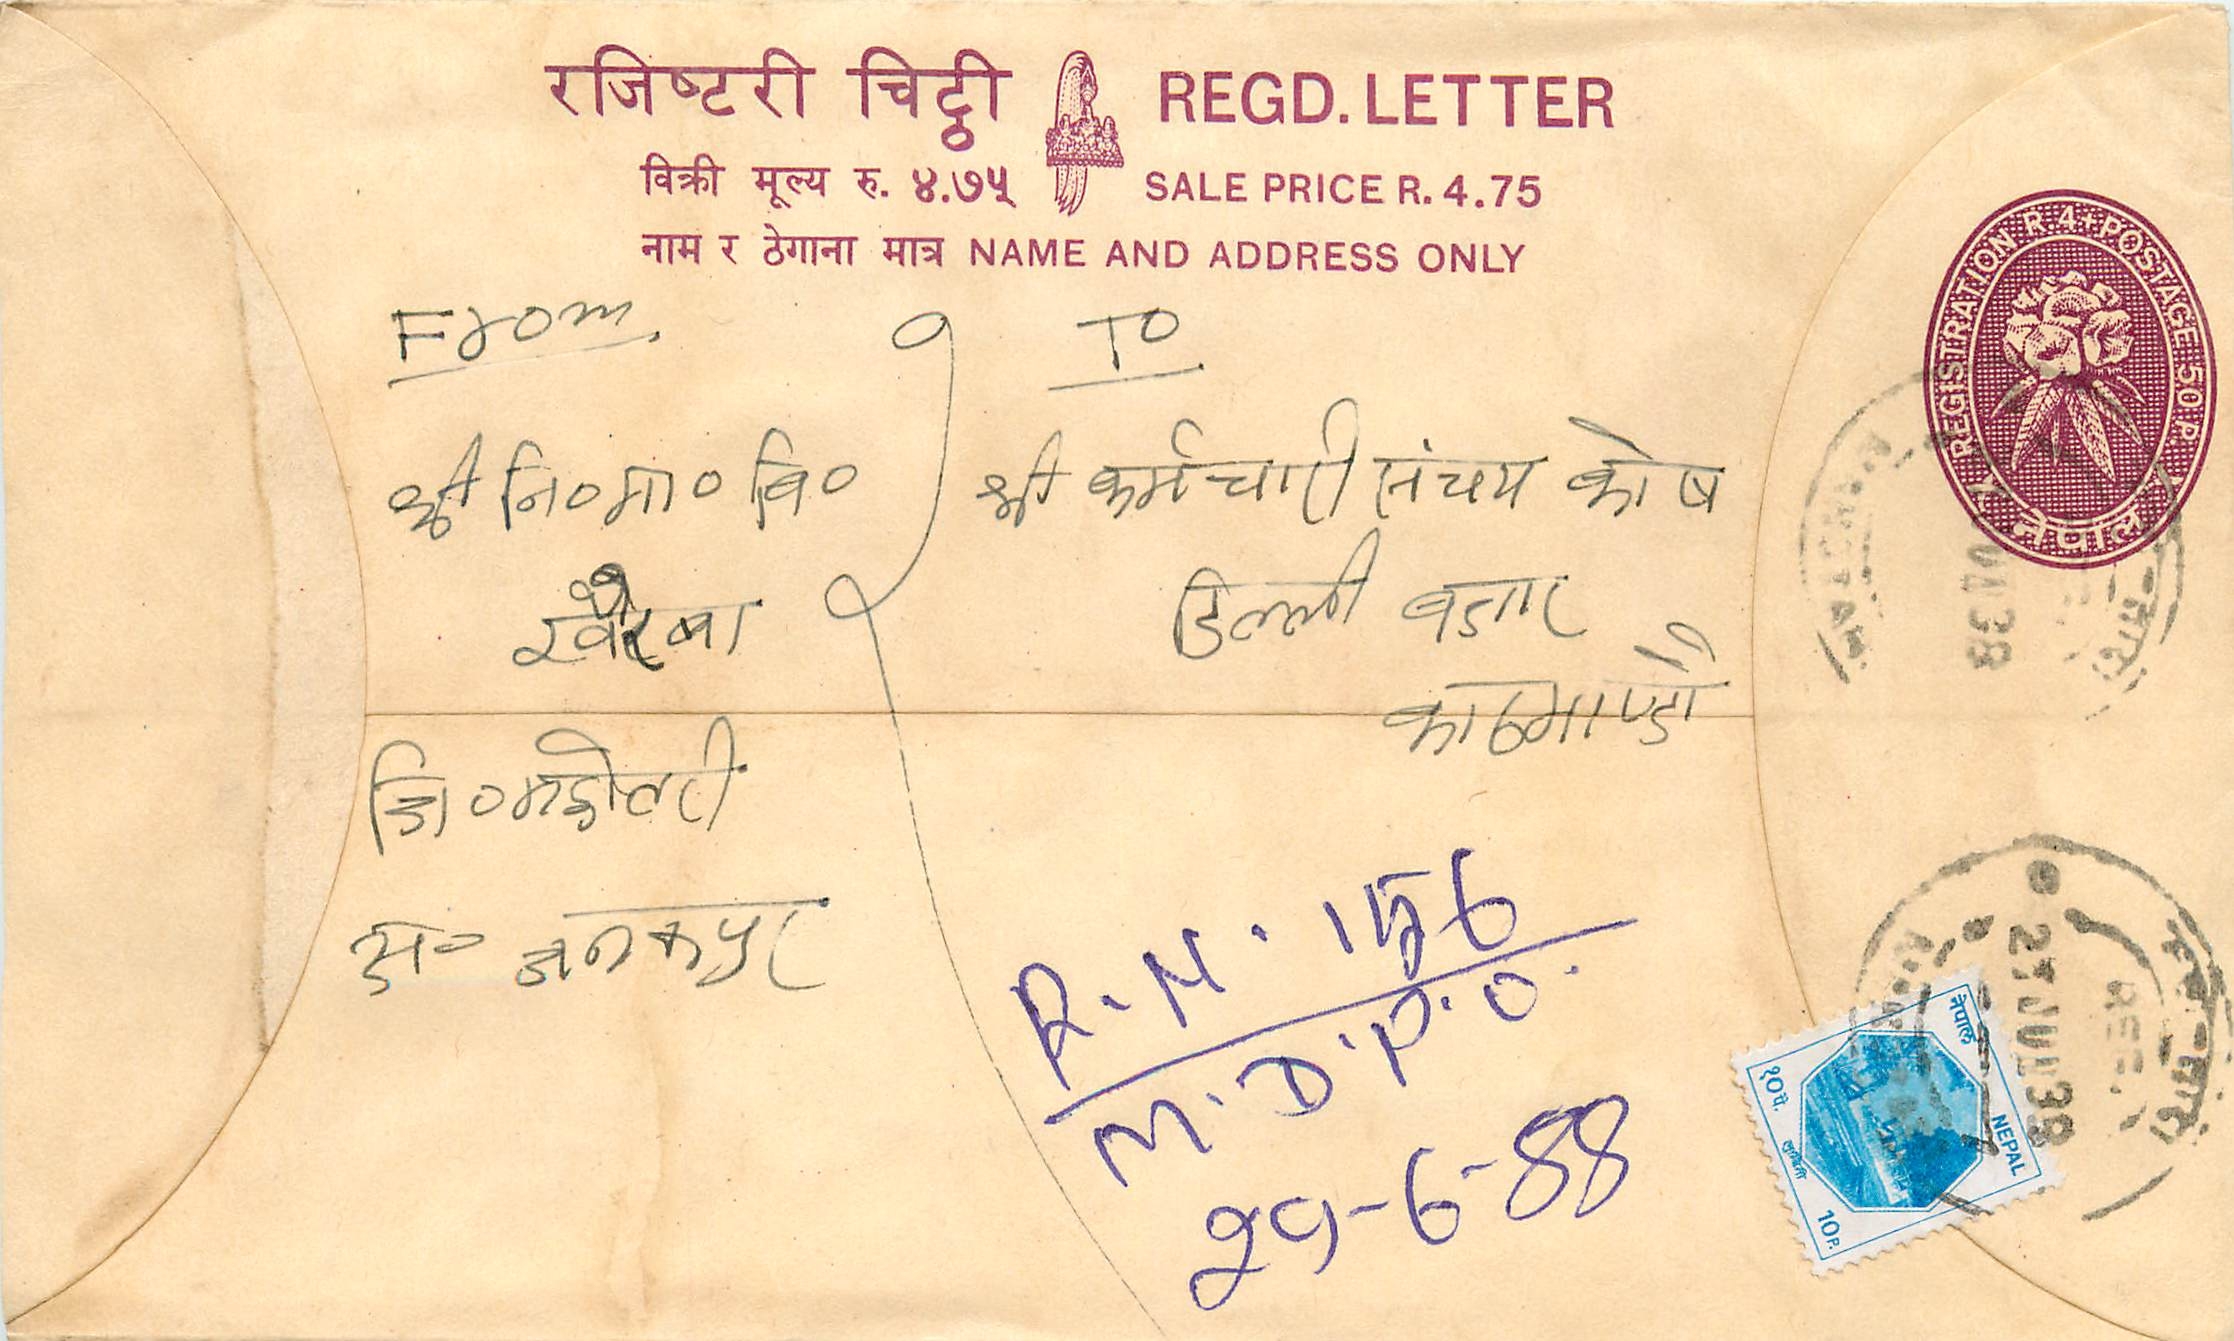 रजिष्टरी चिट्ठी REGD. LETTER
विक्री मूल्य रु. ४.७५ SALE PRICE R. 4.75
नाम र ठेगाना मात्र NAME AND ADDRESS ONLY
REGISTRATION R.4+POSTAGE 50 P.
नेपाल
From
श्री नि०मा०वि०
खैरवा
जि०महोतरी
अं० जनकपुर
To
श्री कर्मचारी संचय कोष
डिल्ली बजार
काठमाण्डौ
R.N. 156
M.D.P.O.
29-6-88
27 JUN 38
नेपाल
१० पै.
लुम्बिनी
NEPAL
10 P.